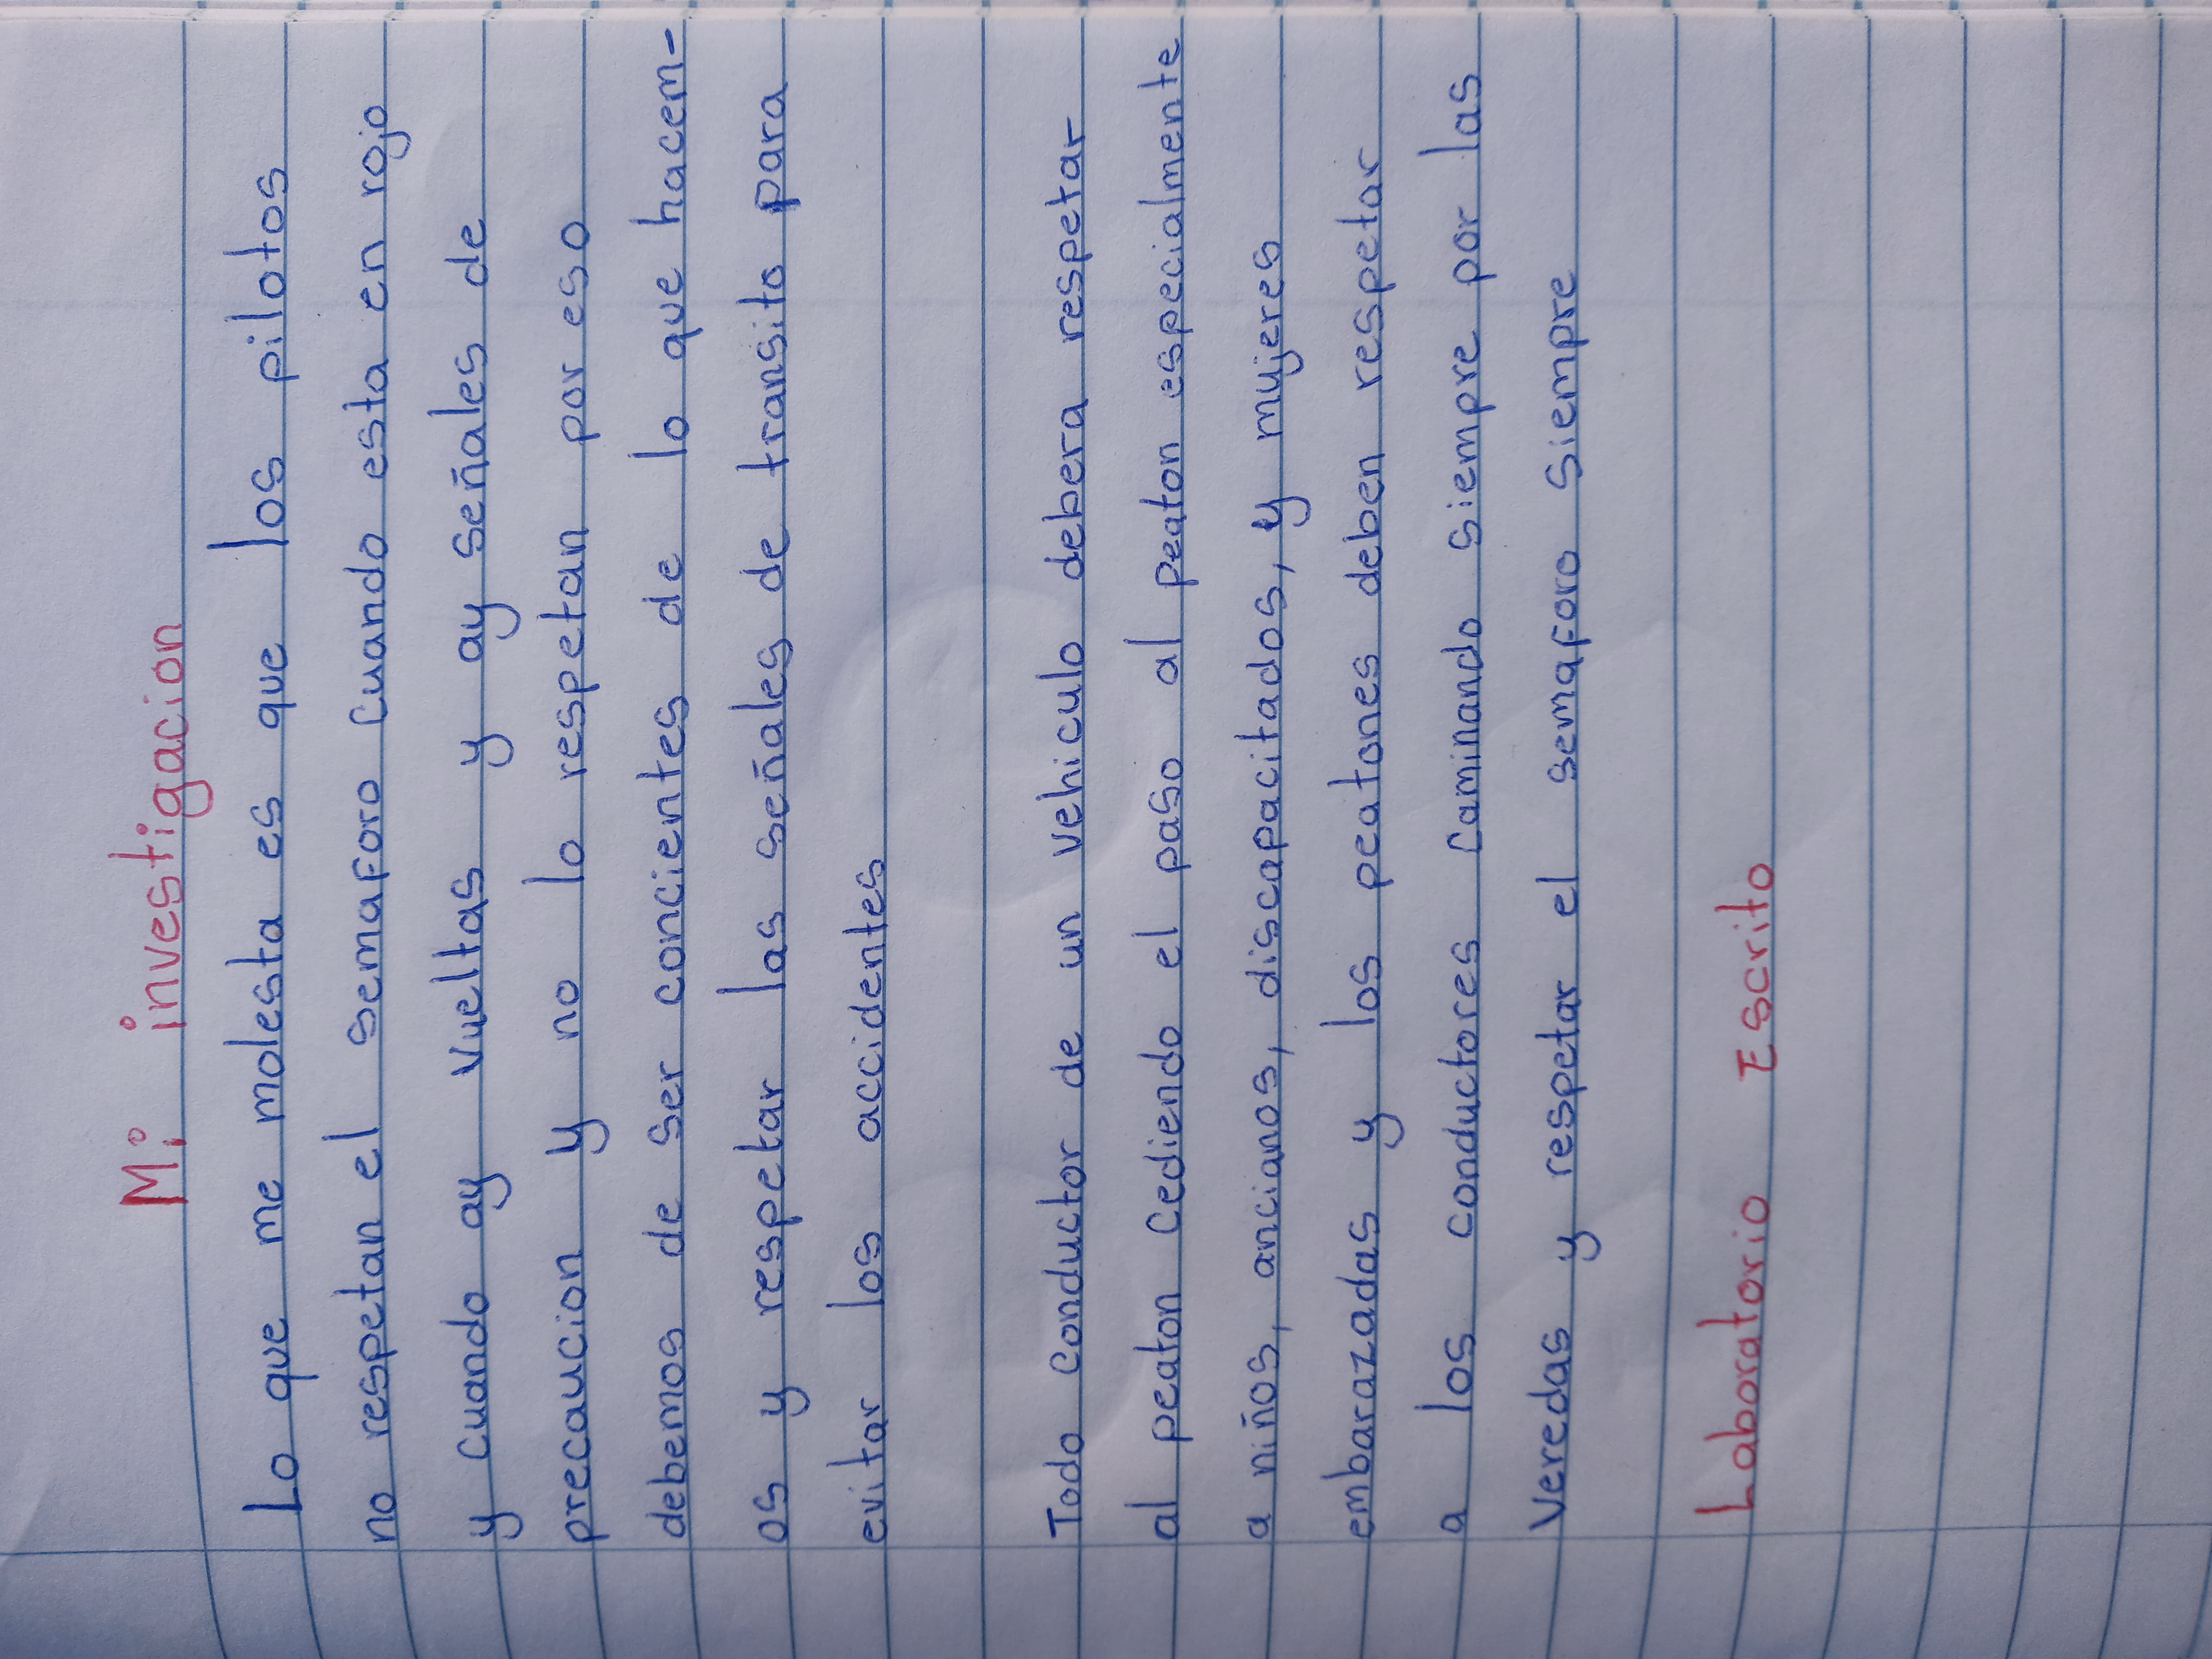 Mi investigacion
Lo que me molesta es que los pilotos
no respetan el semaforo cuando esta en rojo
y cuando ay vueltas y ay señales de
precaucion y no lo respetan por eso
debemos de ser concientes de lo que hacem-
os y respetar las señales de transito para
evitar los accidentes
Todo conductor de un vehiculo debera respetar
al peaton cediendo el paso al peaton especialmente
a niños, ancianos, discapacitados, y mujeres
embarazadas y los peatones deben respetar
a los conductores caminando siempre por las
Veredas y respetar el semaforo siempre
Laboratorio Escrito